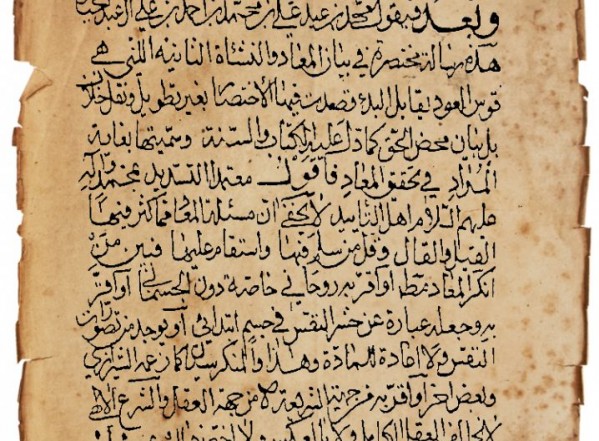 وبعد فيقول محمد بن عبد علي بن محمد بن احمد بن علي
هذه رسالة مختصرة في بيان المعاد والنشاة الثانية اللتي هي
قوس العود يقابل البدء وقصدت فيها الأختصار بغير تطويل ونقل خلاف
بل بيان محض الحق كما دل عليه الكتاب والسنة وسميتها بغاية
المراد في تحقق المعاد فأقول معتمدا التسديد بمحمد وآله
عليهم السلام اهل التاييد لا يخفى ان مسئلة المعاد مما كثر فيها
القيل والقال وقل من سلم فيها واستقام عليها فبين من
انكر المعاد مطلقا او أقر به روحاني خاصة دون الجسماني او أقر
به وجعله عبارة عن حشر النفس في جسم ابتدائي او يوجد من تصورات
النفس ولا اعادة للمادة وهذا والمنكر سيان كما زعمه الشيرازي
وبعض او أقر به من جهة الشريعة لا من جهة العقل والشرع الالهي
لا يخالف العقل الكامل